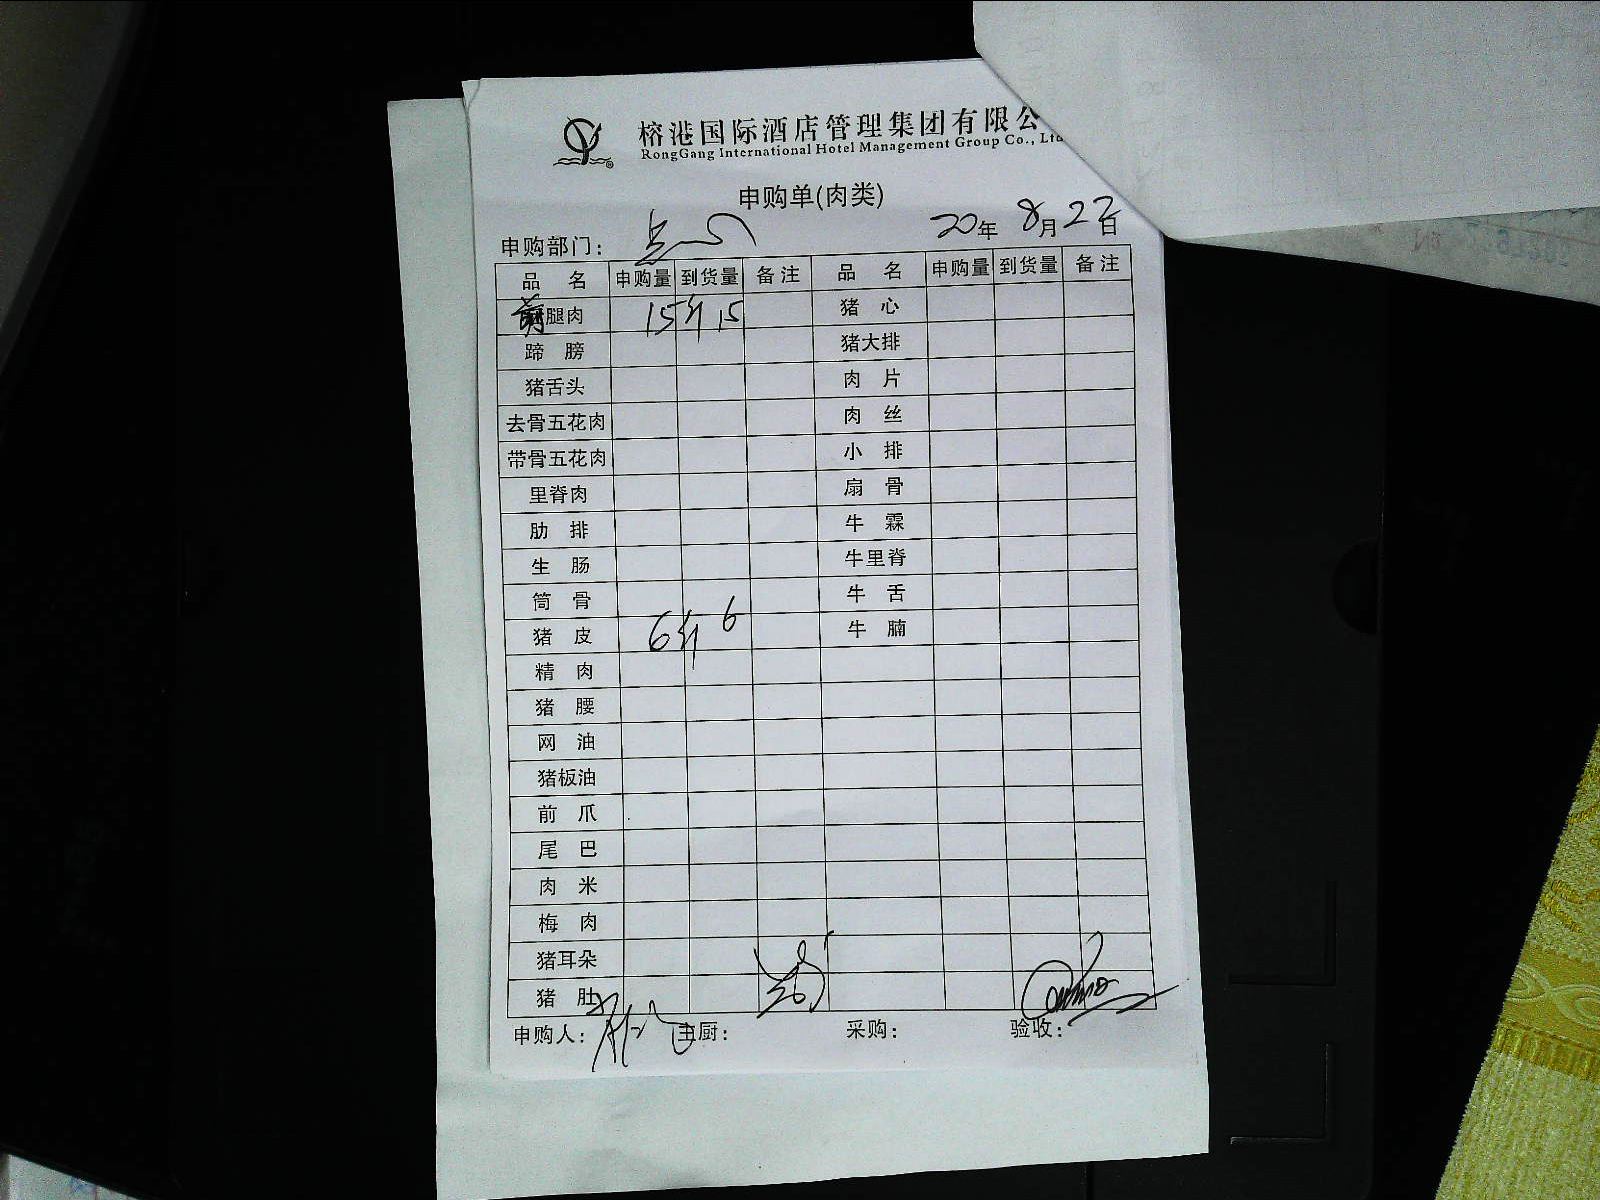 榕港国际酒店管理集团有限公
RongGang International Hotel Management Group Co., Ltd
申购单(肉类)
申购部门： 点心 20年 8月22日
品 名 申购量 到货量 备注 品 名 申购量 到货量 备注
前腿肉 15斤 15 猪 心
蹄 膀 猪大排
猪舌头 肉 片
去骨五花肉 肉 丝
带骨五花肉 小 排
里脊肉 扇 骨
肋 排 牛 霖
生 肠 牛里脊
筒 骨 牛 舌
猪 皮 6斤 6 牛 腩
精 肉
猪 腰
网 油
猪板油
前 爪
尾 巴
肉 米
梅 肉
猪耳朵
猪 肚
申购人： 主厨： 采购： 验收：